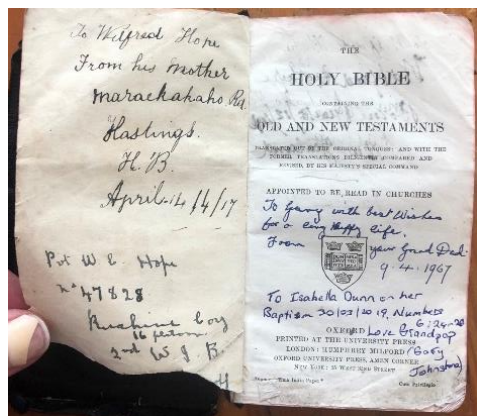 To Wilfred Hope
From his Mother
Marackahaho Rd
Hastings.
H. B.
April 14/4/17
Pvt W. E. Hope
No 47828
Machine Coy
16
2nd W I B.
THE
HOLY BIBLE
CONTAINING THE
OLD AND NEW TESTAMENTS
TRANSLATED OUT OF THE ORIGINAL TONGUES: AND WITH THE
FORMER TRANSLATIONS DILIGENTLY COMPARED AND
REVISED, BY HIS MAJESTY'S SPECIAL COMMAND
APPOINTED TO BE READ IN CHURCHES
To Gary with best Wishes
for a long happy life.
From your Grand Dad.
9.4.1967
To Isabella Dunn on her
Baptism 30/03/2019, Numbers
6:24-26
OXFORD Love Grandpop
PRINTED AT THE UNIVERSITY PRESS
LONDON: HUMPHREY MILFORD (Gary
OXFORD UNIVERSITY PRESS, AMEN CORNER
Johnstone)
NEW YORK: 35 WEST 32ND STREET
Cum Privilegio